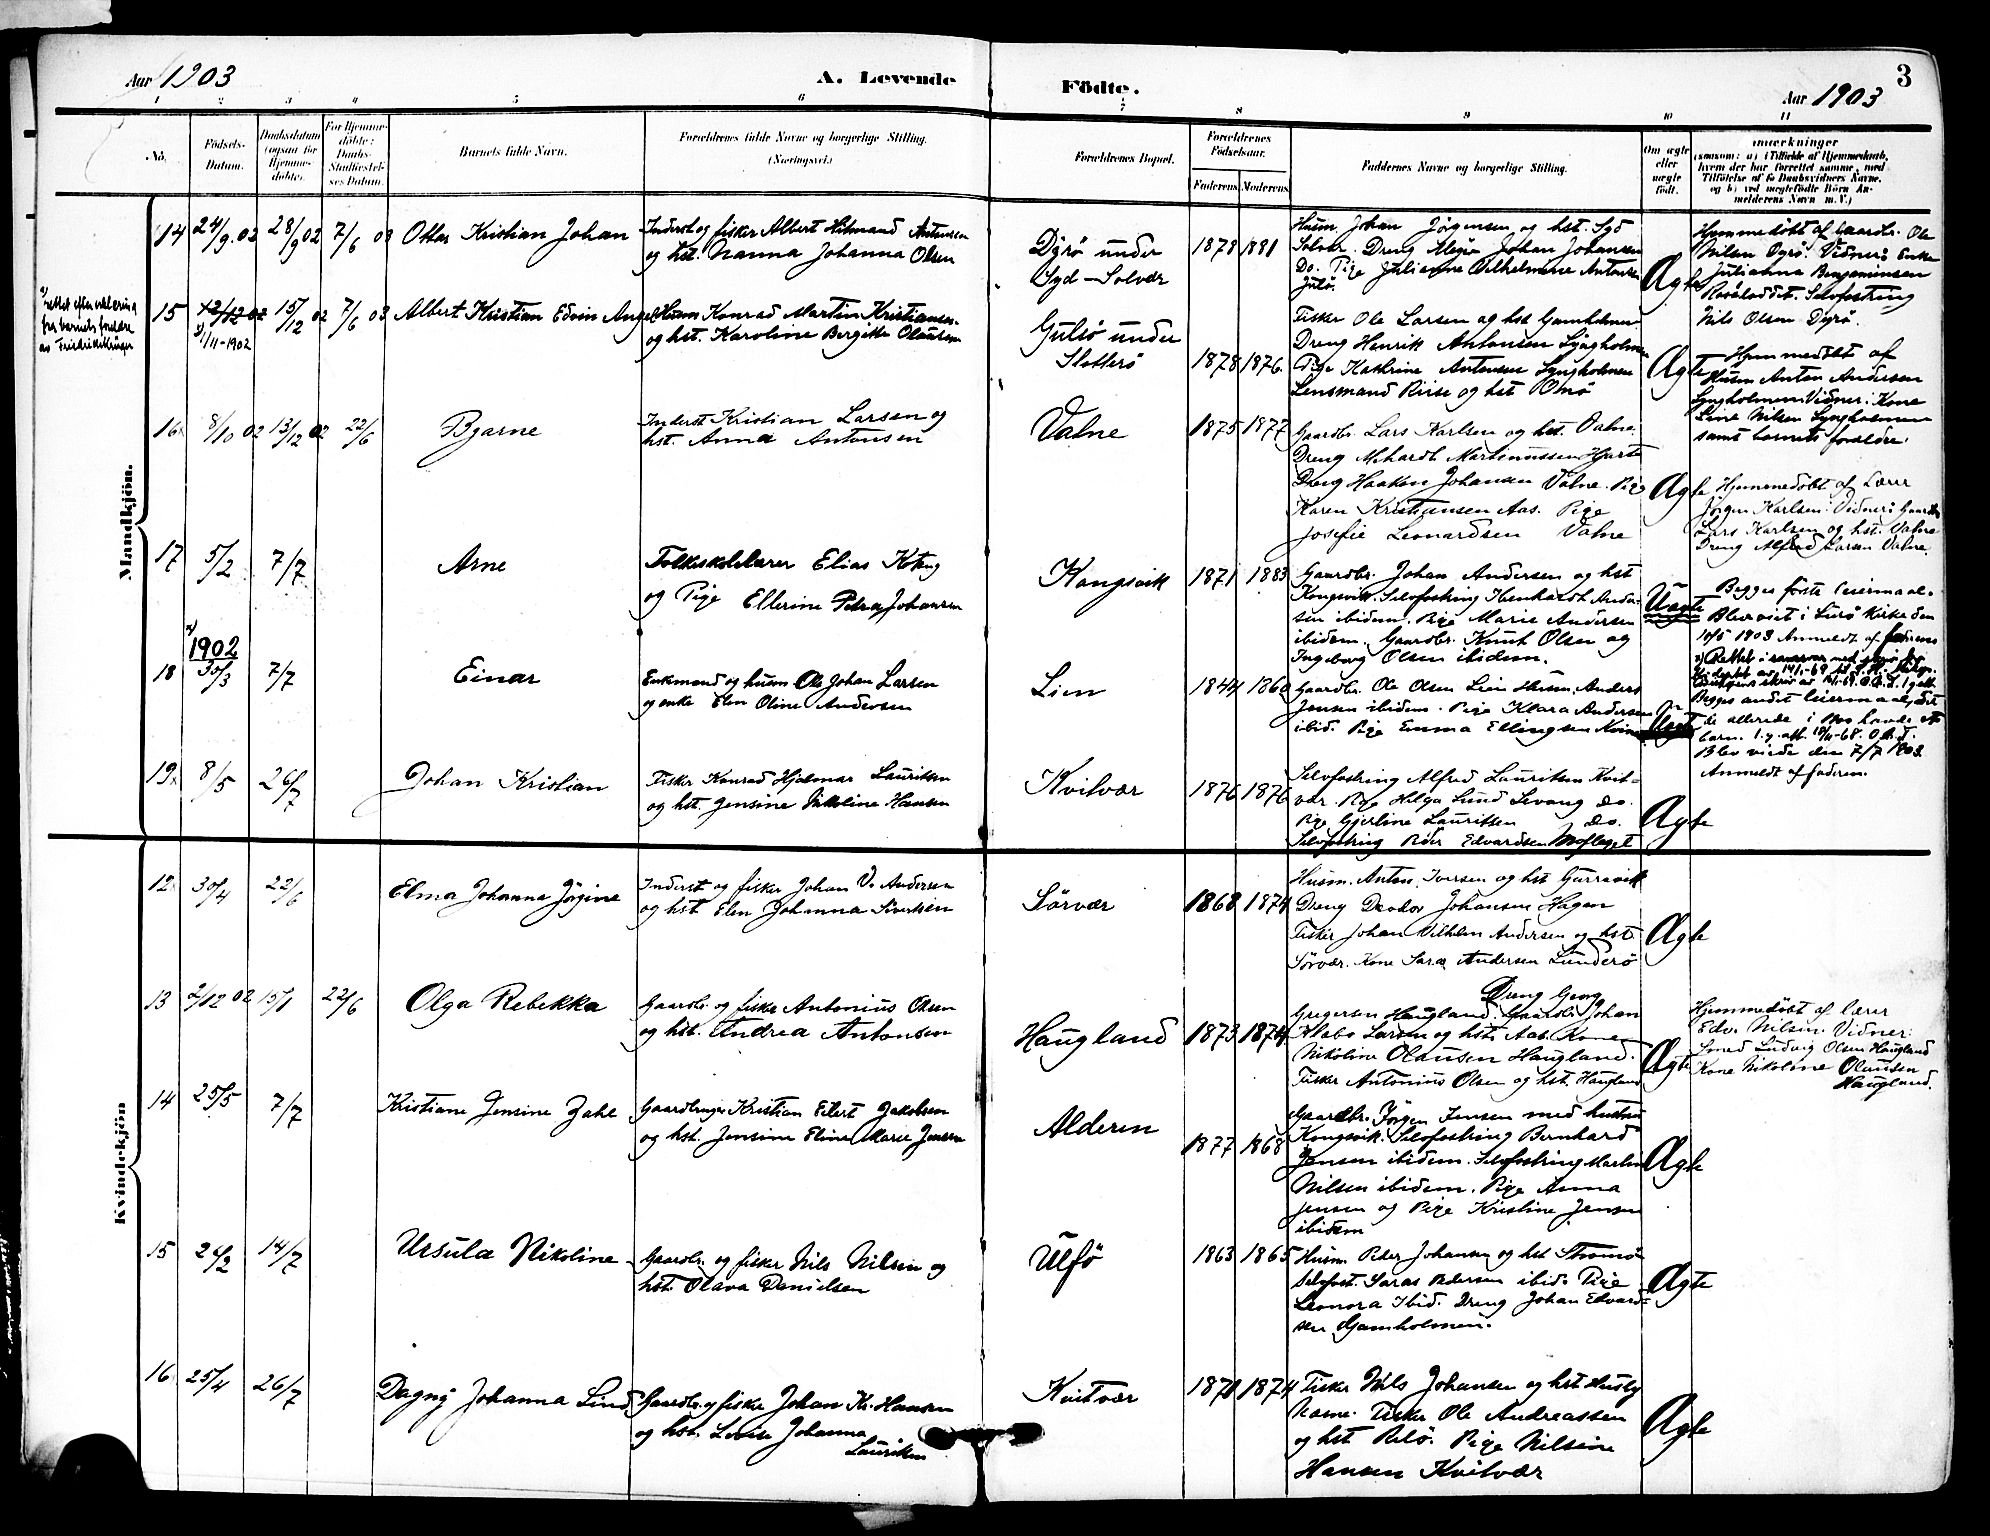 Aar 1903
A. Levende
Födte.
Aar 1903
3
1 2 3 4 5 6 7 8 9 10 11
No.
Födsels-
Datum.
Daabsdatum
(ogsaa for
Hjemme-
döbte).
For Hjemme-
döbte:
Daabs-
Stadfæstel-
ses Datum.
Barnets fulde Navn.
Forældrenes fulde Navne og borgerlige Stilling.
(Næringsvei.)
Forældrenes Bopæl.
Forældrenes
Födselsaar.
Faderens. Moderens.
Faddernes Navne og borgerlige Stilling.
Om ægte
eller
uægte
födt.
Anmærkninger
(saasom: a) i Tilfælde af Hjemmedaab,
hvem der har forrettet samme, med
Tilföielse af to Daabsvidners Navne,
og b) ved uægtefödte Börn An-
melderens Navn m. V.)
Mandkjön.
14 24/9 02 28/9 02 7/6 03 Ottar Kristian Johan
Inderst og fisker Albert Hilmand Antonsen
og hst. Nanna Johanna Olsen
Dyrö under
Syd-Solvær
1878 1881
Husm. Johan Jörgensen og hst. Syd
Solvær. Dreng Johan Johansen
Do. Pige Julianne Vilhelmine Antonsen
Ægte
Hjemmedöbt af Gaardbr. Ole
Nilsen Dyrö. Vidner: Enke
Julianna Benjaminsen
Selvfostring
Nils Olsen Dyrö.
x) rettet efter erklæring
fra barnets forældre
15 12/12 02 15/12 02 7/6 03 Albert Kristian Edvin Ange
x) 1/11-1902
Husm Konrad Martin Kristiansen
og hst. Karoline Bergitte Olausen
Gulsö under
Slotterö
1878 1876.
Fisker Ole Larsen og hst Gamholmen
Dreng Henrik Antonsen Lyngholmen
Pige Kathrine Antonsen Lyngholmen
Lensmand Riise og hst Onö
Ægte
Hjemmedöbt af
Husm Anton Andersen
Lyngholmen Vidner: Kone
Line Nilsen Lyngholmen
samt barnets forældre.
16 8/10 02 13/12 02 22/6 Bjarne
Inderst Kristian Larsen og
hst. Anna Antonsen
Valne
1875 1877
Gaardbr. Lars Karlsen og hst. Valne.
Dreng Martinussen Hjarte
Dreng Haaken Johansen Valne. Pige
Karen Kristiansen Aas. Pige
Josefie Leonardsen Valne
Ægte
Hjemmedöbt af Lærer
Jörgen Karlsen. Vidner: Gaardbr
Lars Karlsen og hst. Valne
Dreng Alfred Larsen Valne.
17 5/2 7/7 Arne
Folkeskolelærer Elias
og Pige Ellerine Petra Johansen
Kongsvik
1871 1883
Gaardbr. Johan Andersen og hst
Kongsvik. Selvfostring Ander-
sen ibidem. Pige Marie Andersen
ibidem. Gaardbr. Knut Olsen og
Ingeborg Olsen ibidem.
Uægte
Begges förste leiermaal.
Blev viet i Lurö Kirke den
10/5 1903 Anmeldt af faderen
x) 1902
18 30/3 7/7 Einar
Enkemand og husm Ole Johan Larsen
og enke Elen Oline Andersen
Lien
1844 1860
Gaardbr. Ole Olsen Lien Husm. Anders
Jensen ibidem. Pige Klara Andersen
ibid. Pige Emma Ellingsen
Uægt
Begges andet leiermaal,
barn.
Blev viede den 7/7 1903.
Anmeldt af faderen.
19 8/5 26/7 Johan Kristian
Fisker Konrad Hjalmar Lauritsen
og hst. Jensine Nikoline Hansen
Kvitvær
1876 1876
Selvfostring Alfred Lauritsen Kvit-
vær. Pige Helga Lund Sevang do.
Pige Gjerline Lauritsen do.
Selvfostring Peder Edvardsen Moflaget
Ægte
Kvindekjön
12 30/4 22/6 Elma Johanna Jörgine
Inderst og fisker Johan V. Andersen
og hst. Elen Johanna Sivertsen
Sörvær
1868 1874
Husm. Anton Iversen og hst
Dreng Johansen Hagen
Fisker Johan Vilhelm Andersen og hst.
Sörvær. Kone Sara Andersen Lunderö
Ægte
13 2/12 02 15/1 22/6 Olga Rebekka
Gaardbr. og fisker Antonius Olsen
og hst. Andrea Antonsen
Haugland
1873 1874
Dreng Georg
Gregersen Haugland. Gaardbr. Johan
Larsen og hst. Aas. Kone
Nikoline Olausen Haugland.
Fisker Antonius Olsen og hst. Haugland
Ægte
Hjemmedöbt af lærer
Edv. Nilsen. Vidner:
Smed Ludvig Olsen Haugland
Kone Nikoline Olausen
Haugland.
14 25/5 7/7 Kristiane Jensine Zahl
Gaardbruger Kristian Eilert Jakobsen
og hst. Jensine Eline Marie Jensen
Alderen
1877 1868
Gaardbr. Jörgen Jensen med hustru
Kongsvik. Selvfostring Bernhard
Jensen ibidem. Selvfostring Martin
Nilsen ibidem. Pige Anna
Jensen og Pige Kristine Jensen
ibidem
Ægte
15 14/7 Ursula Nikoline
Gaardbr. og fisker Nils Nilsen og
hst. Olava Danielsen
Ulfö
1863 1865
Husm Peder Johansen og hst
Selvfost. Pedersen ibid. Pige
Leonora Ibid. Dreng Johan Edvard-
sen Gjamholmen.
Ægte
16 25/4 26/7 Dagny Johanna Lind
Gaardbr. og fisker Johan Kr. Hansen
og hst. Lovise Johanna
Lauritsen
Kvitvær
1870 1874
Fisker Nils Johansen og hst Husby
Næsne. Fisker Ole Andreassen
og hst Selö. Pige Nilsine
Hansen Kvitvær
Ægte